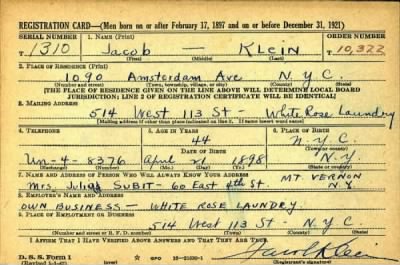 REGISTRATION CARD—(Men born on or after February 17, 1897 and on or before December 31, 1921)
SERIAL NUMBER 1. NAME (Print) ORDER NUMBER
T 1310 Jacob — Klein T 10,322
(First) (Middle) (Last)
2. PLACE OF RESIDENCE (Print)
1090 Amsterdam Ave N.Y.C.
(Number and street) (Town, township, village, or city) (County) (State)
[THE PLACE OF RESIDENCE GIVEN ON THE LINE ABOVE WILL DETERMINE LOCAL BOARD
JURISDICTION; LINE 2 OF REGISTRATION CERTIFICATE WILL BE IDENTICAL]
3. MAILING ADDRESS
514 West 113 St — White Rose Laundry
[Mailing address if other than place indicated on line 2. If same insert word same]
4. TELEPHONE 5. AGE IN YEARS 6. PLACE OF BIRTH
44 N.Y.C.
DATE OF BIRTH (Town or county)
Un-4-8376 April 21 1898 N.Y.
(Mo.) (Day) (Yr.) (State or country)
7. NAME AND ADDRESS OF PERSON WHO WILL ALWAYS KNOW YOUR ADDRESS MT VERNON
Mrs. Julius SUBIT — 60 East 4th St N.Y.
8. EMPLOYER'S NAME AND ADDRESS
OWN BUSINESS — WHITE ROSE LAUNDRY.
9. PLACE OF EMPLOYMENT OR BUSINESS
514 West 113 St — N.Y.C.
(Number and street or R. F. D. number) (Town) (County) (State)
I AFFIRM THAT I HAVE VERIFIED ABOVE ANSWERS AND THAT THEY ARE TRUE.
D. S. S. Form 1 GPO 16—21630-1 Jacob Klein
(Registrant's signature)